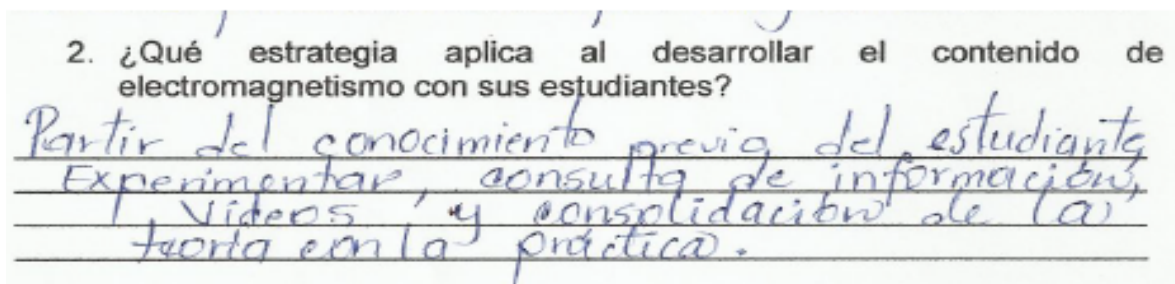 2. ¿Qué estrategia aplica al desarrollar el contenido de
electromagnetismo con sus estudiantes?
Partir del conocimiento previo del estudiante,
Experimentar, consulta de información,
videos y consolidación de la
teoría con la práctica.